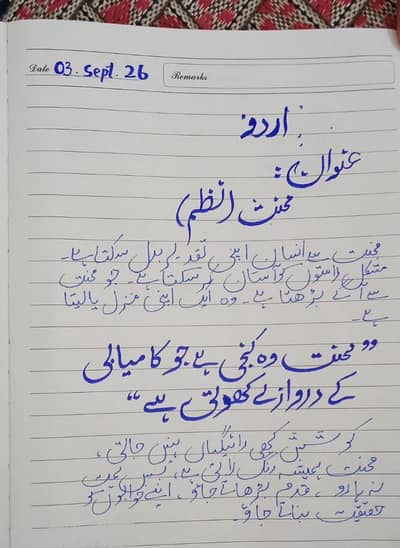 Date 03. Sept. 26
Remarks
اردو
عنوان:
محنت (نظم)
محنت سے انسان اپنی تقدیر بدل سکتا ہے۔
مشکل راستوں کو آسان کر سکتا ہے۔ جو محنت
سے آگے بڑھتا ہے۔ وہ ایک اپنی منزل پا لیتا
ہے۔
”محنت وہ کنجی ہے جو کامیابی
کے دروازے کھولتی ہے“
کوشش کبھی رائیگاں نہیں جاتی،
محنت ہمیشہ رنگ لاتی ہے، بس ہمت
نہ ہارو، قدم بڑھاتے جاؤ، اپنے خوابوں کو
حقیقت بناتے جاؤ۔